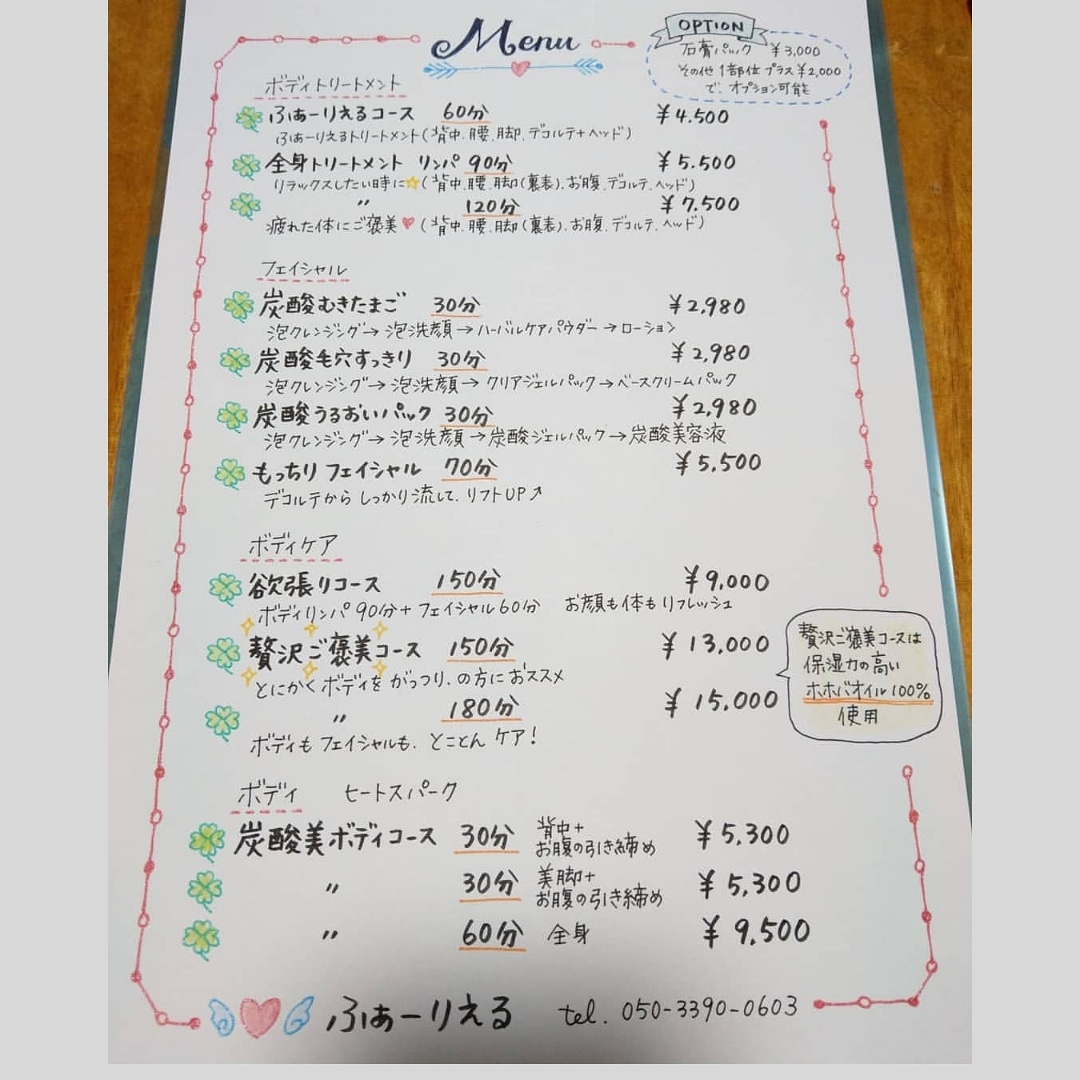 Menu
OPTION
石膏パック ￥3,000
その他1部位プラス￥2,000
で、オプション可能
ボディトリートメント
ふぁーりえるコース 60分 ￥4.500
ふぁーりえるトリートメント(背中.腰.脚.デコルテ+ヘッド)
全身トリートメント リンパ 90分 ￥5.500
リラックスしたい時に☆(背中.腰.脚(裏表).お腹.デコルテ.ヘッド)
〃 120分 ￥7,500
疲れた体にご褒美♥(背中.腰.脚(裏表).お腹.デコルテ.ヘッド)
フェイシャル
炭酸むきたまご 30分 ￥2,980
泡クレンジング→泡洗顔→ハーバルケアパウダー→ローション
炭酸毛穴すっきり 30分 ￥2,980
泡クレンジング→泡洗顔→クリアジェルパック→ベースクリームパック
炭酸うるおいパック 30分 ￥2,980
泡クレンジング→泡洗顔→炭酸ジェルパック→炭酸美容液
もっちりフェイシャル 70分 ￥5,500
デコルテからしっかり流して、リフトUP↗
ボディケア
欲張りコース 150分 ￥9,000
ボディリンパ90分+フェイシャル60分 お顔も体もリフレッシュ
贅沢ご褒美コース 150分 ￥13,000
とにかくボディをがっつり、の方におススメ
〃 180分 ￥15,000
ボディもフェイシャルも、とことんケア!
贅沢ご褒美コースは
保湿力の高い
ホホバオイル100%
使用
ボディ ヒートスパーク
炭酸美ボディコース 30分 背中+
お腹の引き締め ￥5,300
〃 30分 美脚+
お腹の引き締め ￥5,300
〃 60分 全身 ￥9,500
ふぁーりえる tel. 050-3390-0603